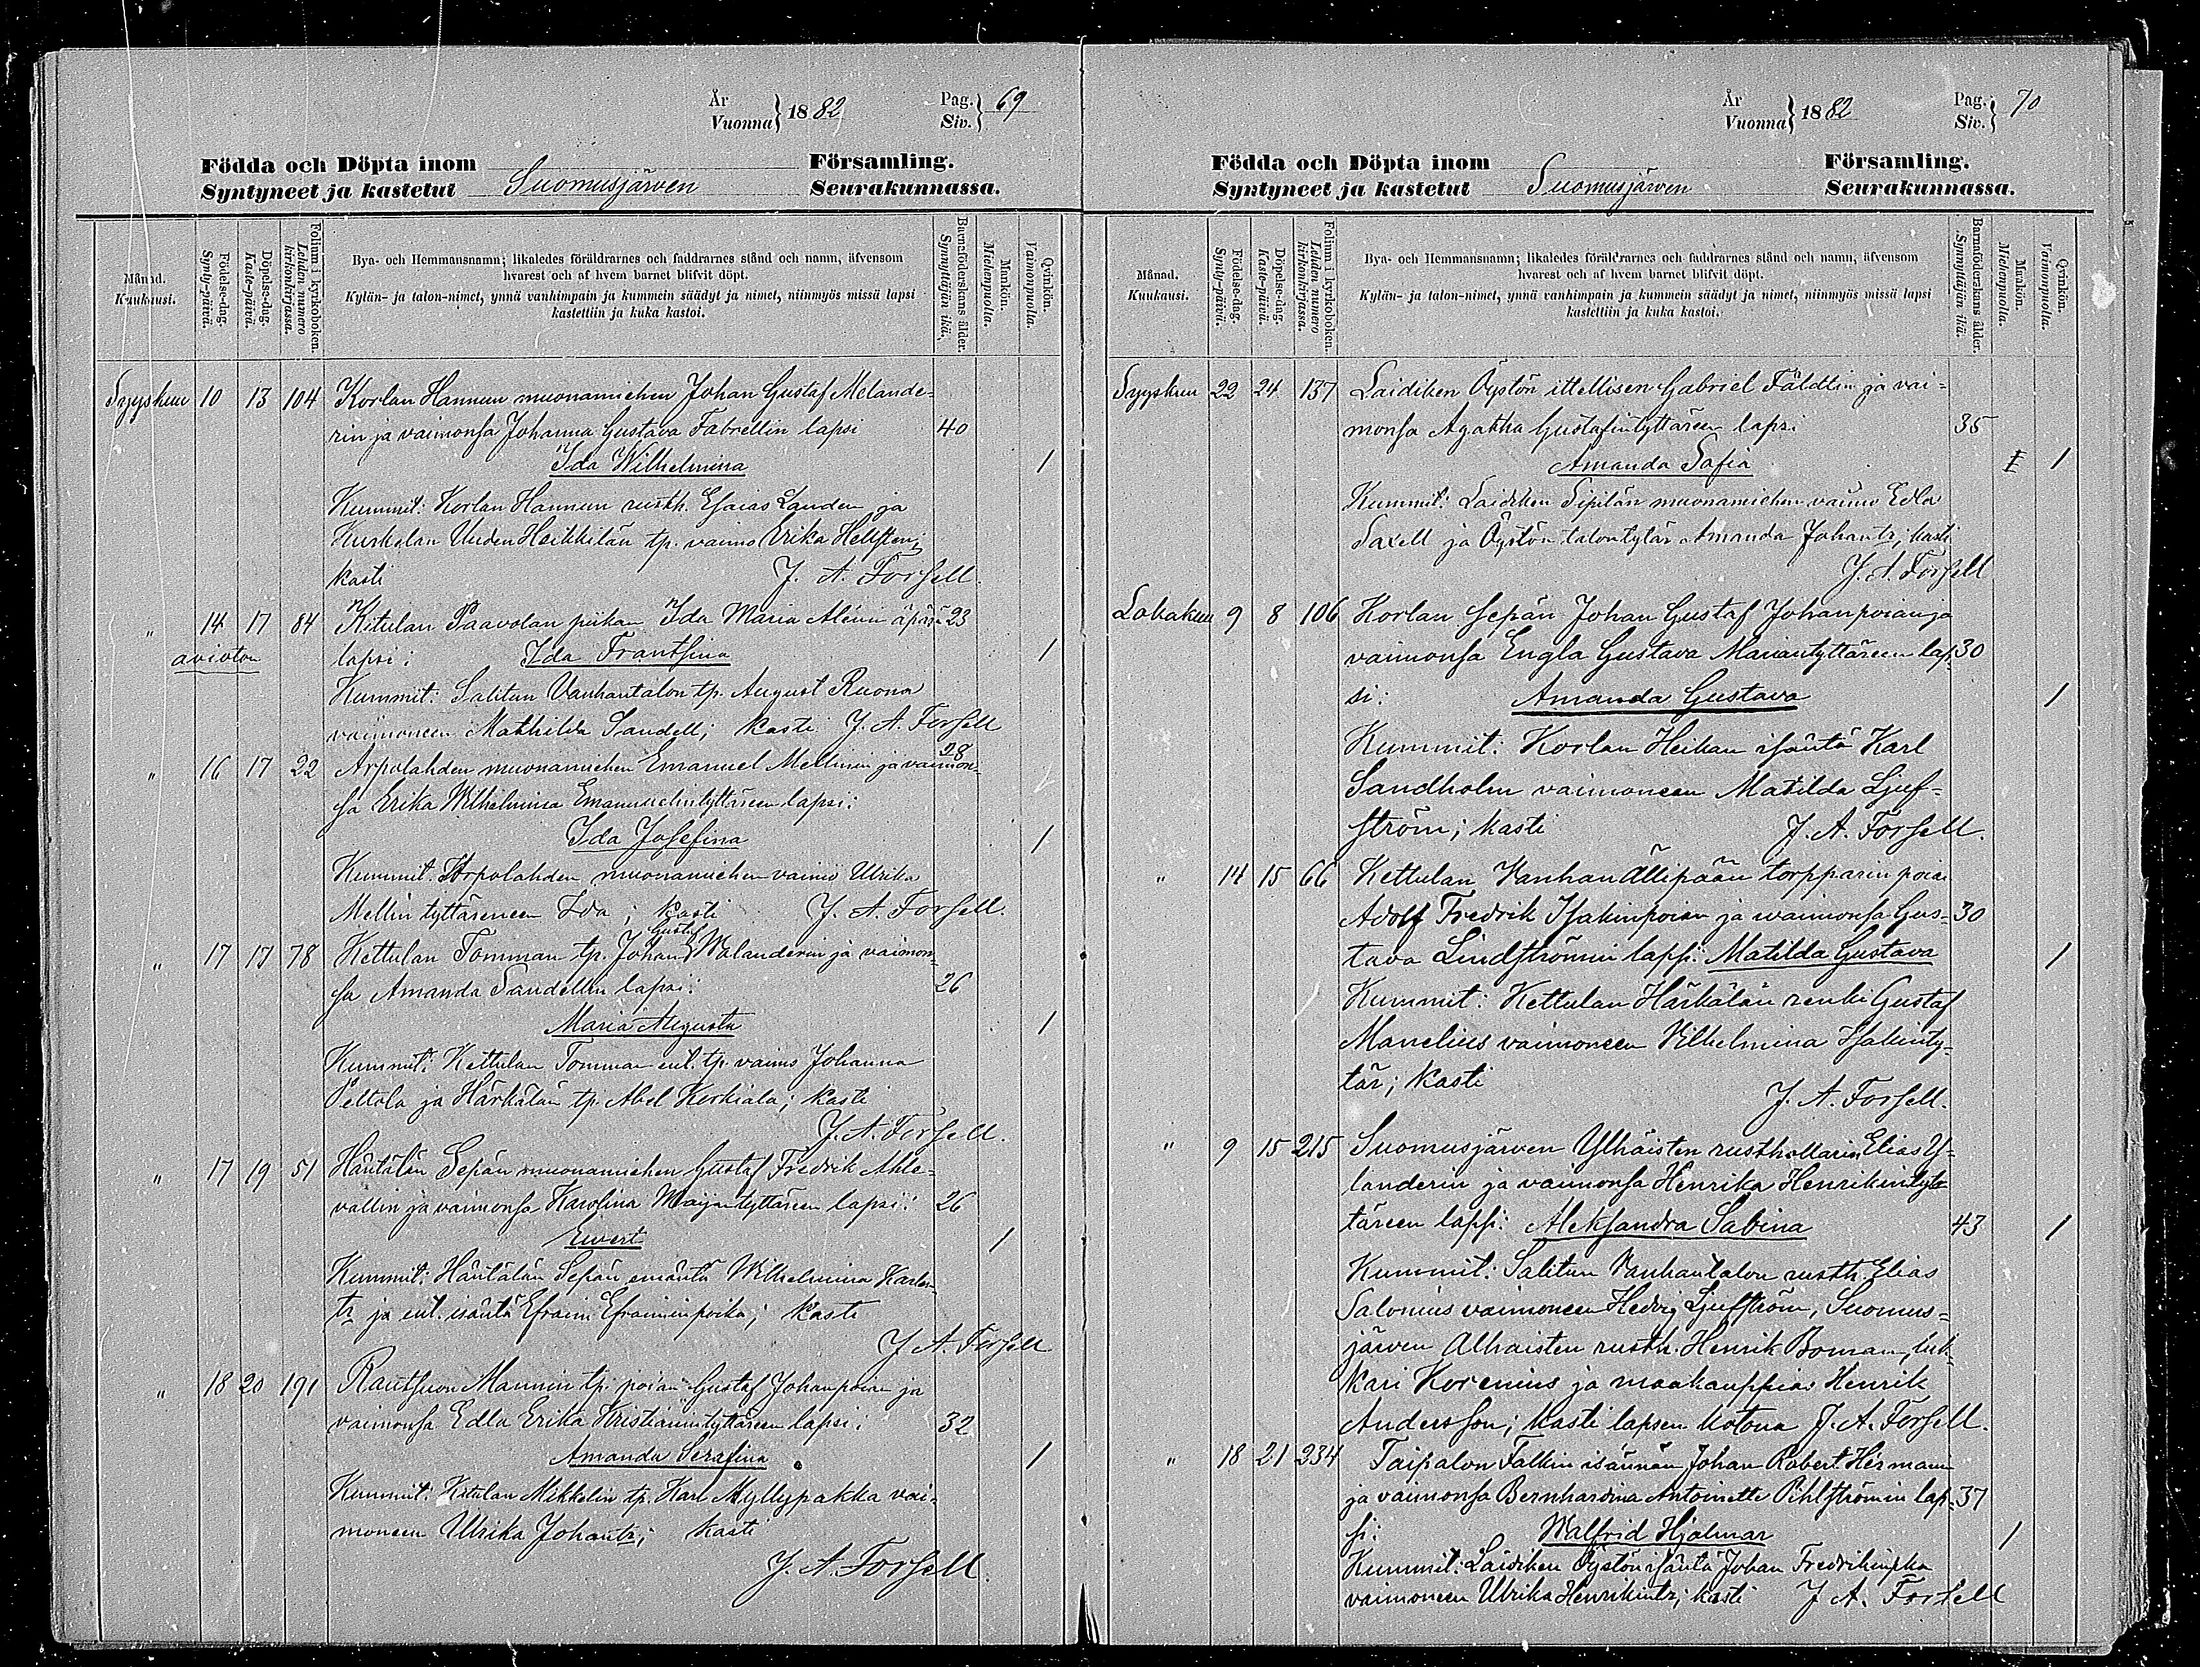 År
Vuonna } 1882
Pag.
Siv. } 69
Födda och Döpta inom Församling.
Syntyneet ja kastetut Suomusjärven Seurakunnassa.
Månad.
Kuukausi.
Födelse-dag.
Synty-päivä.
Döpelse-dag.
Kaste-päivä.
Folium i kyrkoboken.
Lehden numero kirkonkirjassa.
Bya- och Hemmansnamn; likaledes föräldrarnes och faddrarnes stånd och namn, äfvensom
hvarest och af hvem barnet blifvit döpt.
Kylän- ja talon-nimet, ynnä vanhimpain ja kummein säädyt ja nimet, niinmyös missä lapsi
kastettiin ja kuka kastoi.
Barnaföderskans ålder.
Synnyttäjän ikä.
Mankön.
Miehenpuolia.
Qvinkön.
Vaimonpuolia.
Syyskuu 10 13 104 Korlan Hannun muonamiehen Johan Gustaf Melande-
rin ja vaimonsa Johanna Gustava Fabrellin lapsi 40
Ida Wilhelmina 1
Kummit: Korlan Hannun rusth. Esaias Landen ja
Kurkelan Uuden Heikkilän tp. vaimo Erika Helsten;
kasti J. A. Forsell.
" 14 17 84 Kitulan Paavolan piikan Ida Maria Alénin äpärä 23
avioton lapsi: Ida Frantsina 1
Kummit: Salitun Vanhantalon tp. August Ruona
vaimoneen Mathilda Sandell; kasti J. A. Forsell
" 16 17 22 Arpolahden muonamiehen Emanuel Mellinin ja vaimon- 28
sa Erika Wilhelmina Emanuelintyttären lapsi:
Ida Josefina 1
Kummit: Arpolahden muonamiehen vaimo Ulrika
Mellin tyttäreneen Ida; kasti J. A. Forsell.
" 17 17 78 Kettulan Tomman tp. Johan Gustaf Walanderin ja vaimon-
sa Amanda Sandellin lapsi: 26
Maria Augusta 1
Kummit: Kettulan Tomman ent. tp. vaimo Johanna
Peltola ja Härkälän tp. Abel Kerkiala; kasti
J. A. Forsell.
" 17 19 51 Häntälän Sepän muonamiehen Gustaf Fredrik Ahle-
vallin ja vaimonsa Karolina Maijantyttäreen lapsi: 26
Ewert 1
Kummit: Häntälän Sepän emäntä Wilhelmina Karlin-
tr ja ent. isäntä Efraim Efraiminpoika; kasti
J. A. Forsell
" 18 20 191 Rautsuon Mannin tp. poian Gustaf Johanpoian ja
vaimonsa Edla Erika Kristianintyttäreen lapsi: 32
Amanda Serafina 1
Kummit: Kitulan Mikkelin tp. Karl Myllypakka vai-
moneen Ulrika Johantr; kasti
J. A. Forsell.
År
Vuonna } 1882
Pag.
Siv. } 70
Födda och Döpta inom Församling.
Syntyneet ja kastetut Suomusjärven Seurakunnassa.
Månad.
Kuukausi.
Födelse-dag.
Synty-päivä.
Döpelse-dag.
Kaste-päivä.
Folium i kyrkoboken.
Lehden numero kirkonkirjassa.
Bya- och Hemmansnamn; likaledes föräldrarnes och faddrarnes stånd och namn, äfvensom
hvarest och af hvem barnet blifvit döpt.
Kylän- ja talon-nimet, ynnä vanhimpain ja kummein säädyt ja nimet, niinmyös missä lapsi
kastettiin ja kuka kastoi.
Barnaföderskans ålder.
Synnyttäjän ikä.
Mankön.
Miehenpuolia.
Qvinkön.
Vaimonpuolia.
Syyskuu 22 24 137 Laidiken Öystön itellisen Gabriel Fäldtin ja vai-
monsa Agatha Gustafintyttäreen lapsi 35
Amanda Sofia 1
Kummit: Laidiken Sipilän muonamiehen vaimo Edla
Saxell ja Öystön talontytär Amanda Johantr; kasti
J. A. Forsell
Lokakuu 9 8 106 Korlan sepän Johan Gustaf Johanpoian ja
vaimonsa Engla Gustava Mariantyttäreen lap- 30
si: Amanda Gustava 1
Kummit: Korlan Heikan isäntä Karl
Sandholm vaimoneen Matilda Ljuf-
ström; kasti J. A. Forsell.
" 14 15 66 Kettulan Vanhan Ällipään torpparin poian
Adolf Fredrik Isakinpoian ja waimonsa Gus- 30
tava Lindströmin lapsi: Matilda Gustava 1
Kummit: Kettulan Härkälän renki Gustaf
Manelius vaimoneen Vilhelmina Isakinty-
tär; kasti
J. A. Forsell.
" 9 15 215 Suomusjärven Ylhäisten rusthollarin Elias Y-
landerin ja vaimonsa Henrika Henrikintyt-
täreen lapsi: Aleksandra Sabina 43 1
Kummit: Salitun Vanhantalon rusth. Elias
Salonius vaimoneen Hedvig Ljufström, Suomus-
järven Alhaisten rusth. Henrik Boman, luk-
kari Korenius ja maakauppias Henrik
Andersson; kasti lapsen kotona J. A. Forsell.
" 18 21 234 Taipalon Falkin isännän Johan Robert Herman
ja vaimonsa Bernhardina Antoinette Pihlströmin lap- 37
si: Walfrid Hjalmar 1
Kummit: Laidiken Öystön isäntä Johan Fredrikinpka
vaimoneen Ulrika Henrikintr; kasti J. A. Forsell